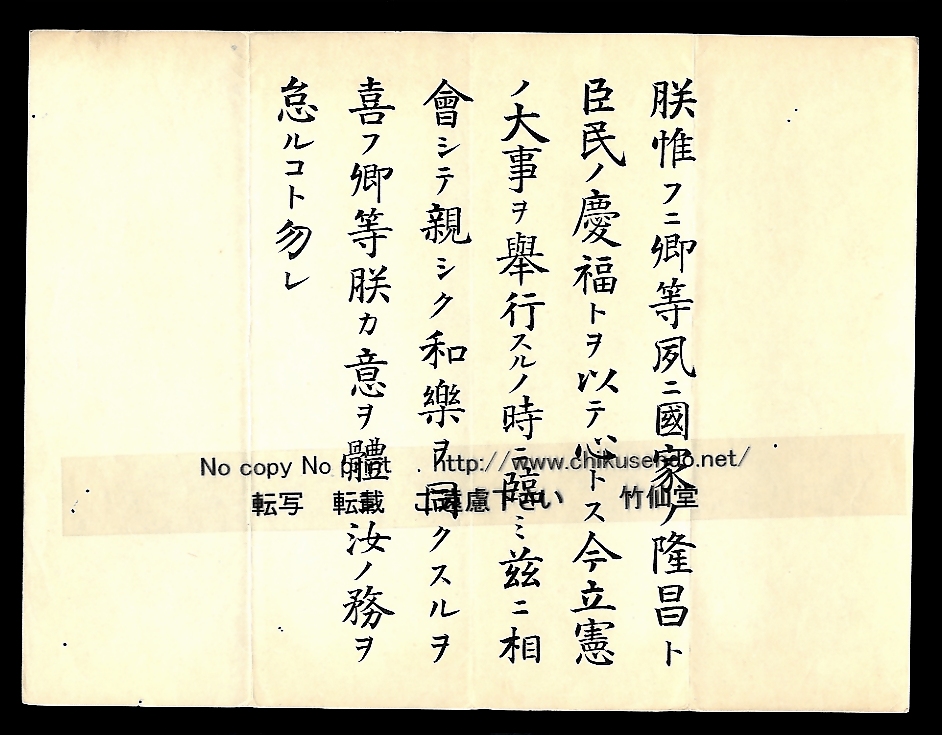 朕惟フニ卿等夙ニ國家ノ隆昌ト
臣民ノ慶福トヲ以テ心トス今立憲
ノ大事ヲ舉行スルノ時ニ臨ミ茲ニ相
會シテ親シク和樂ヲ同クスルヲ
喜フ卿等朕カ意ヲ體シ汝ノ務ヲ
怠ルコト勿レ
No copy No print . http://www.chikusendo.net/
転写 転載 ご遠慮下さい 竹仙堂